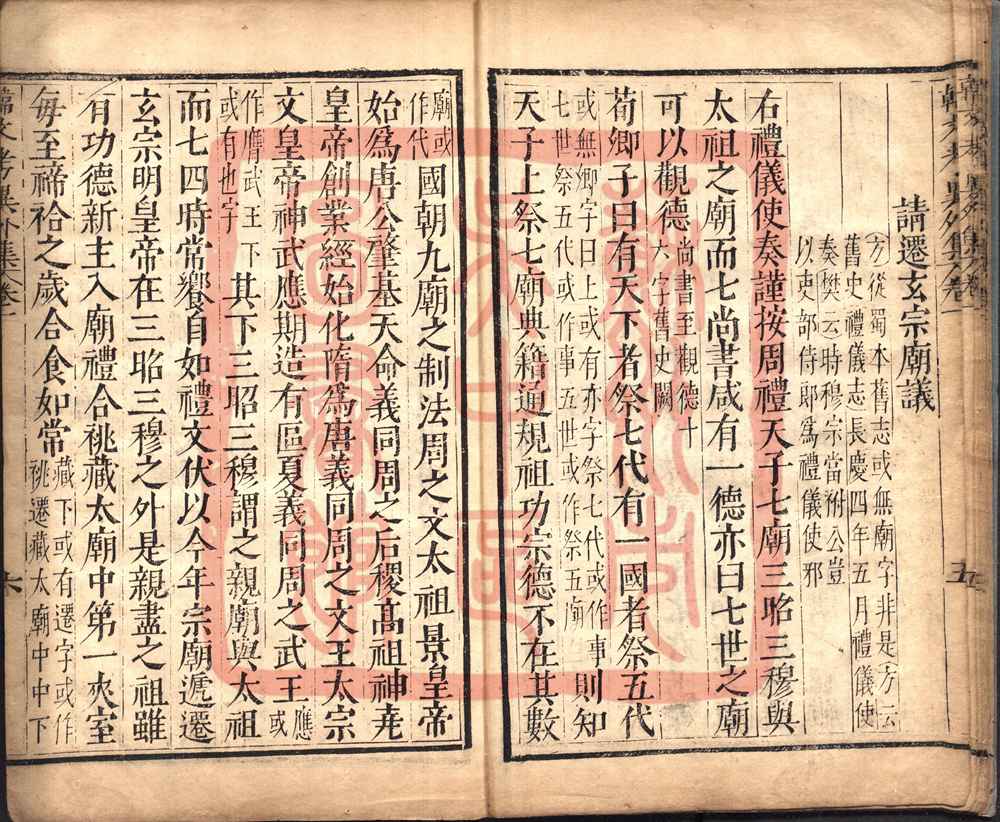 請遷玄宗廟議
方從蜀本舊志或無廟字非是方云
舊史禮儀志長慶四年五月禮儀使
奏樊云時穆宗當祔公豈
以吏部侍郎為禮儀使邪
右禮儀使奏謹按周禮天子七廟三昭三穆與
太祖之廟而七尚書咸有一德亦曰七世之廟
可以觀德尚書至觀德十
六字舊史闕
荀卿子曰有天下者祭七代有一國者祭五代
或無卿字曰上或有亦字祭七代或作事
七世祭五代或作事五世或作祭五廟
則知
天子上祭七廟典籍通規祖功宗德不在其數
廟或
作代
國朝九廟之制法周之文太祖景皇帝
始爲唐公肇基天命義同周之后稷髙祖神尭
皇帝創業經始化隋爲唐義同周之文王太宗
文皇帝神武應期造有區夏義同周之武王應
或
作膺武王下
或有也字
其下三昭三穆謂之親廟與太祖
而七四時常饗自如禮文伏以今年宗廟遞遷
玄宗明皇帝在三昭三穆之外是親盡之祖雖
有功德新主入廟禮合祧藏太廟中第一夾室
每至禘祫之歲合食如常藏下或有遷字或作
祧遷藏太廟中中下
韓文考異外集卷一
五
六